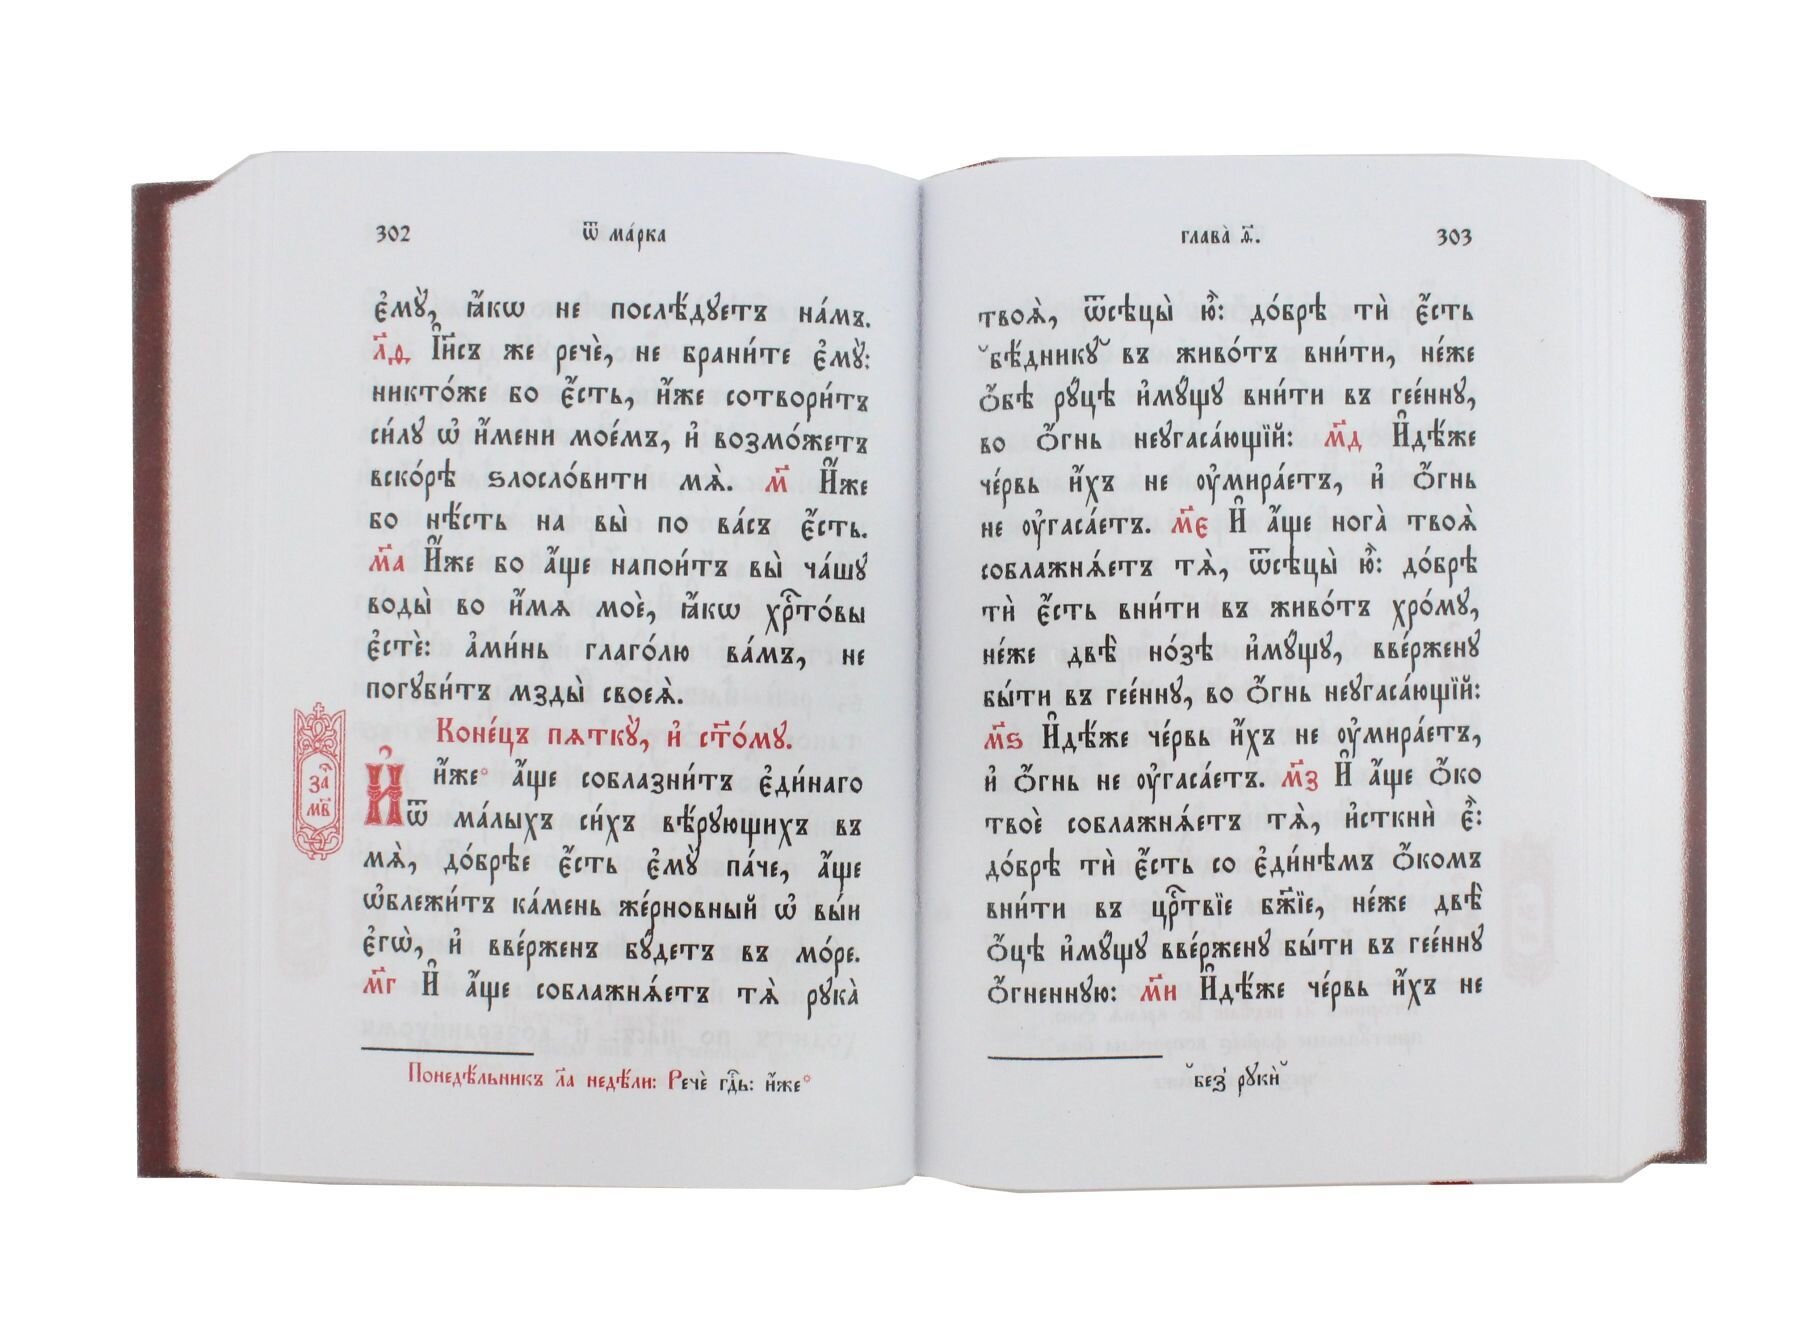 302
ѿ ма́рка
є҆мꙋ̀, ꙗ҆́кѡ не послѣ́дꙋетъ на́мъ.
л҃ѳ І҆и҃съ же речѐ, не брани́те є҆мꙋ̀:
никто́же бо є҆́сть, и҆́же сотвори́тъ
си́лꙋ ѡ҆ и҆́мени мое́мъ, и҆ возмо́жетъ
вско́рѣ ѕлосло́вити мѧ̀. м҃ И҆́же
бо нѣ́сть на вы̀ по ва́съ є҆́сть.
м҃а И҆́же бо а҆́ще напои́тъ вы̀ ча́шꙋ
воды̀ во и҆́мѧ моѐ, ꙗ҆́кѡ хрⷭ҇то́вы
є҆стѐ: а҆ми́нь глаго́лю ва́мъ, не
погꙋби́тъ мзды̀ своеѧ̀.
Коне́цъ пѧткꙋ̀, и҆ ст҃о́мꙋ.
заⷱ҇
м҃в
И҆ и҆́же* а҆́ще соблазни́тъ є҆ди́наго
ѿ ма́лыхъ си́хъ вѣ́рꙋющихъ въ
мѧ̀, до́брѣе є҆́сть є҆мꙋ̀ па́че, а҆́ще
ѡ҆блежи́тъ ка́мень же́рновный ѡ҆ вы́и
є҆гѡ̀, и҆ вве́рженъ бꙋ́детъ въ мо́ре.
м҃г И҆ а҆́ще соблажнѧ́етъ тѧ̀ рꙋка̀
Понедѣ́льникъ л҃а недѣ́ли: Речѐ гдⷭ҇ь: и҆́же*
глава̀ ѳ҃.
303
твоѧ̀, ѿсѣцы̀ ю҆̀: до́брѣ тѝ є҆́сть
˘бѣ́дникꙋ˘ въ живо́тъ вни́ти, не́же
ѻ҆́бѣ рꙋ́цѣ и҆мꙋ́щꙋ вни́ти въ гее́ннꙋ,
во ѻ҆́гнь неꙋгаса́ющїй: м҃д И҆дѣ́же
че́рвь и҆́хъ не ᲂу҆мира́етъ, и҆ ѻ҆́гнь
не ᲂу҆гаса́етъ. м҃є И҆ а҆́ще нога̀ твоѧ̀
соблажнѧ́етъ тѧ̀, ѿсѣцы̀ ю҆̀: до́брѣ
тѝ є҆́сть вни́ти въ живо́тъ хро́мꙋ,
не́же двѣ̀ но́зѣ и҆мꙋ́щꙋ, вве́рженꙋ
бы́ти въ гее́ннꙋ, во ѻ҆́гнь неꙋгаса́ющїй:
м҃ѕ И҆дѣ́же че́рвь и҆́хъ не ᲂу҆мира́етъ,
и҆ ѻ҆́гнь не ᲂу҆гаса́етъ. м҃з И҆ а҆́ще ѻ҆́ко
твоѐ соблажнѧ́етъ тѧ̀, и҆сткнѝ є҆̀:
до́брѣ тѝ є҆́сть со є҆ди́нѣмъ ѻ҆́комъ
вни́ти въ црⷭ҇твїе бж҃їе, не́же двѣ̀
ѻ҆́цѣ и҆мꙋ́щꙋ вве́рженꙋ бы́ти въ гее́ннꙋ
ѻ҆́гненнꙋю: м҃и И҆дѣ́же че́рвь и҆́хъ не
˘без̾ рꙋкѝ˘